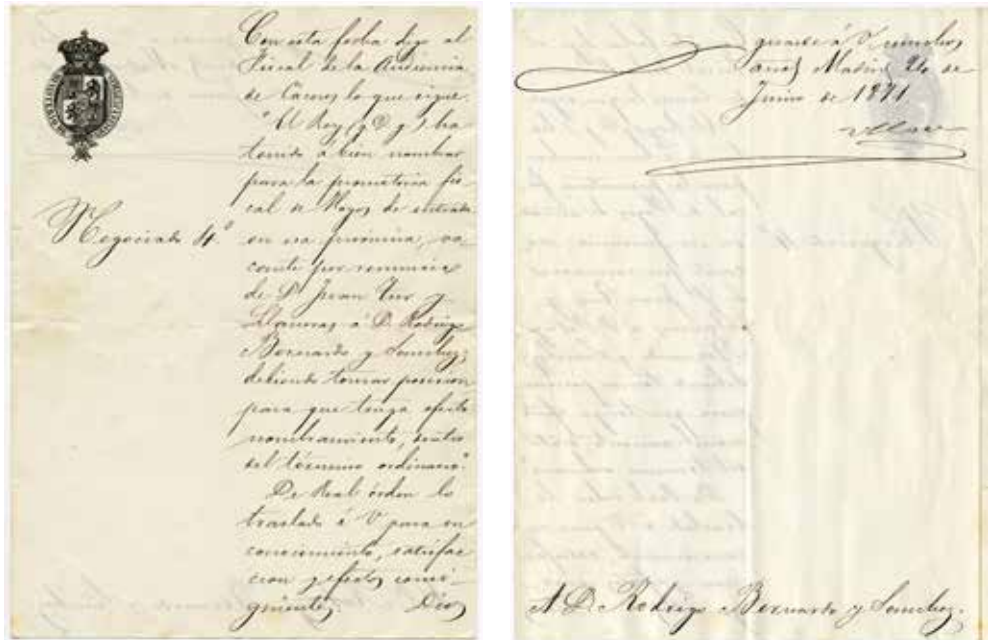 Con esta fecha digo al
Fiscal de la Audiencia
de Cáceres lo que sigue.
"El Rey (q D g) ha
tenido á bien nombrar
para la promotoria fis
cal de Hoyos de entrada
en esa provincia, va
cante por renuncia
de D. Juan y
á D. Rodrigo
Bernardo y Sanchez;
debiendo tomar posesion
para que tenga efecto
nombramiento, dentro
del término ordinario."
De Real órden lo
traslado á V para su
conocimiento, satisfac
cion y efectos consi-
guientes. Dios
Negociado 4.º
guarde á V muchos
años Madrid 24 de
Junio de 1871
A D. Rodrigo Bernardo y Sanchez.